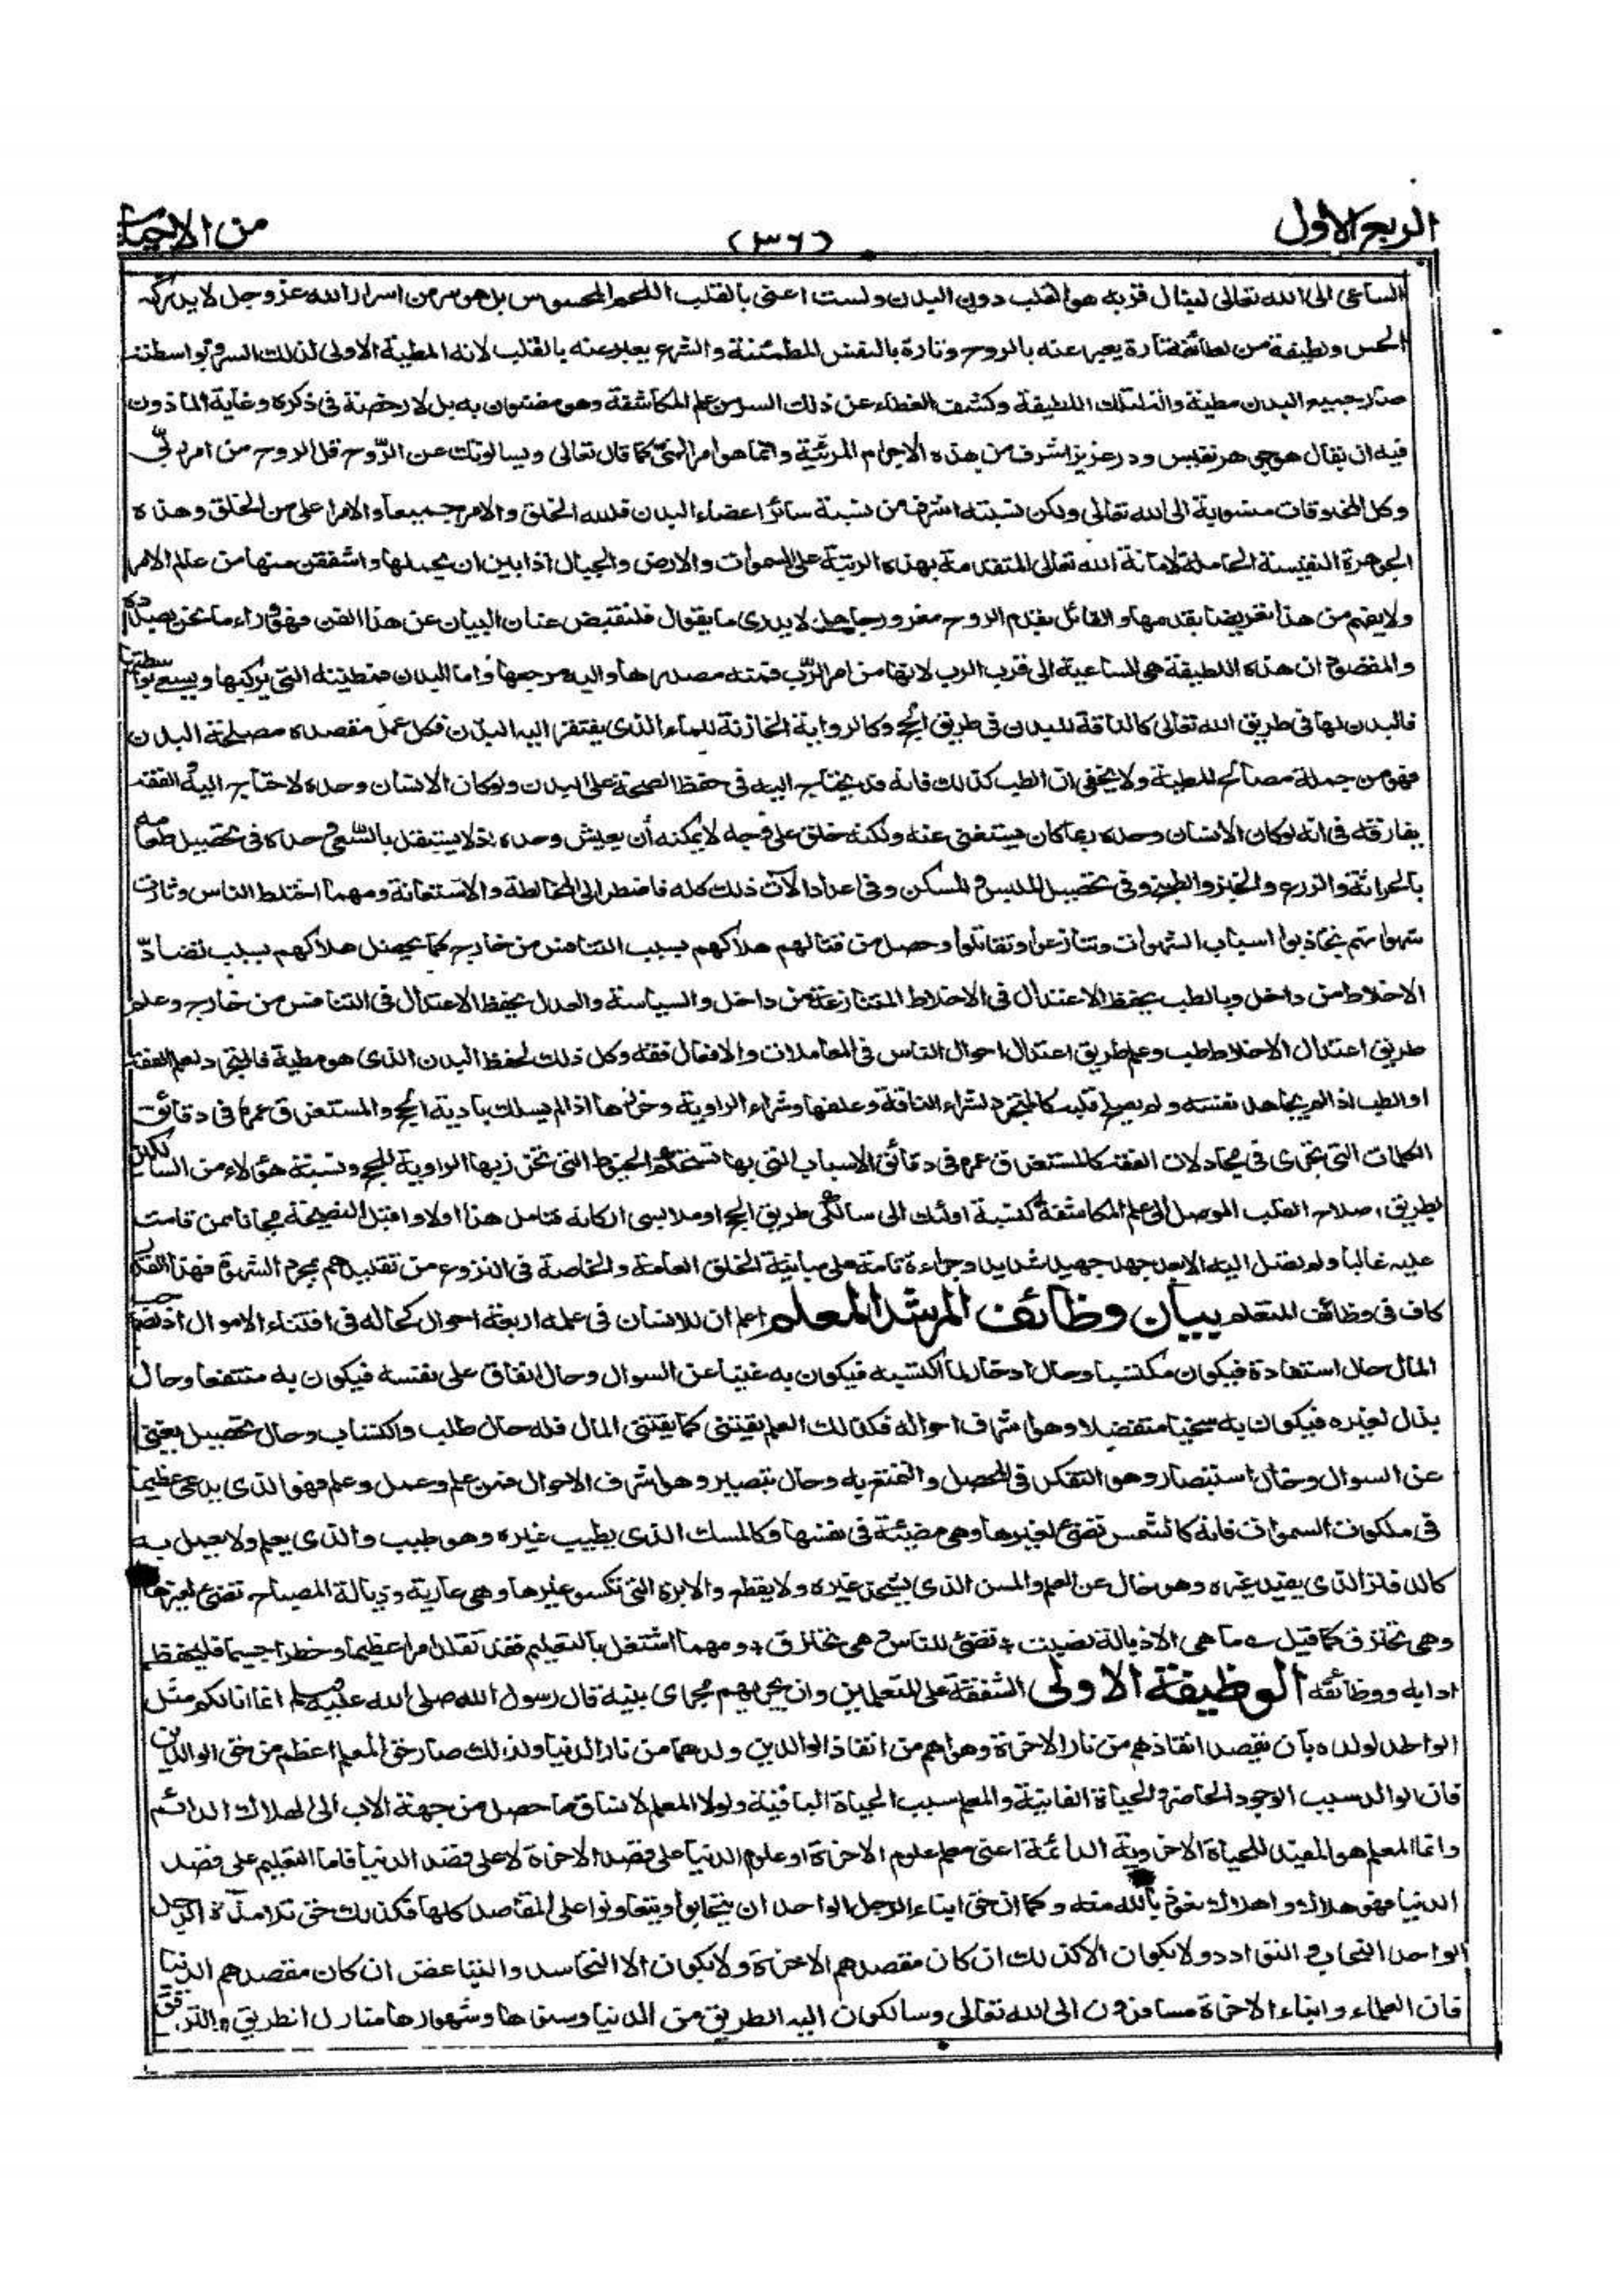 الربع الاول
(٣٦)
من الاحياء
الساعى الى الله تعالى لينال قربه هو القلب دون البدن ولست اعنى بالقلب اللحم المحسوس بل هو سر من اسرار الله عز وجل لا يدركه
الحس ولطيفة من لطائفه تارة يعبر عنه بالروح وتارة بالنفس المطمئنة والشرع يعبر عنه بالقلب لانه المطية الاولى لذلك السر وبواسطته
صار جميع البدن مطية والة لتلك اللطيفة وكشف الغطاء عن ذلك السر من علم المكاشفة وهو مضنون به بل لا رخصة فى ذكره وغاية الماذون
فيه ان يقال هو جوهر نفيس ودر عزيز اشرف من هذه الاجرام المرئية وانما هو امر الهى كما قال تعالى ويسالونك عن الروح قل الروح من امر ربى
وكل المخلوقات منسوبة الى الله تعالى ولكن نسبته اشرف من نسبة سائر اعضاء البدن فلله الخلق والامر جميعا والامر اعلى من الخلق وهذه
الجوهرة النفيسة الحاملة لامانة الله تعالى المتقدمة بهذه الرتبة على السموات والارض والجبال اذ ابين ان يحملنها واشفقن منها من عالم الامر
ولا يفهم من هذا تعريضا بقدمها والقائل بقدم الروح مغرور جاهل لا يدرى ما يقول فلنقبض عنان البيان عن هذا الفن فهو وراء ما نحن بصدده
والمقصود ان هذه اللطيفة هى الساعية الى قرب الرب لانها من امر الرب فمنه مصدرها واليه مرجعها واما البدن فمطيته التى يركبها ويسعى بواسطتها
فالبدن لها فى طريق الله تعالى كالناقة للبدن فى طريق الحج وكالرواية الخازنة للماء الذى يفتقر اليه البدن فكل عمل مقصده مصلحة البدن
فهو من جملة مصالح المطية ولا يخفى ان الطب كذلك فانه قد يحتاج اليه فى حفظ الصحة على البدن ولو كان الانسان وحده لاحتاج اليه والفقه
يفارقه فى انه لو كان الانسان وحده ربما كان يستغنى عنه ولكنه خلق على وجه لا يمكنه أن يعيش وحده اذ لا يستقل بالسعى وحده فى تحصيل طعامه
بالحراثة والزرع والخبز والطبخ وفى تحصيل الملبس والمسكن وفى اعداد الات ذلك كله فاضطر الى المخالطة والاستعانة ومهما اختلط الناس وثارت
شهواتهم تجاذبوا اسباب الشهوات وتنازعوا وتقاتلوا وحصل من قتالهم هلاكهم بسبب التنافس من خارج كما يحصل هلاكهم بسبب تضاد
الاخلاط من داخل وبالطب يحفظ الاعتدال فى الاخلاط المتنازعة من داخل والسياسة والعدل يحفظ الاعتدال فى التنافس من خارج وعلم
طريق اعتدال الاخلاط طب وعلم طريق اعتدال احوال الناس فى المعاملات والافعال فقه وكل ذلك لحفظ البدن الذى هو مطية فالمتجرد لعلم الفقه
او الطب اذ لم يجاهد نفسه ولم يصلح قلبه كالمتجرد لشراء الناقة وعلفها وشراء الراوية وخرزها اذا لم يسلك بادية الحج والمستغرق عمره فى دقائق
الكلمات التى تجرى فى مجادلات الفقه كالمستغرق عمره فى دقائق الاسباب التى بها تستحكم الخيوط التى تخرز بها الراوية للحج ونسبة هؤلاء من السالكين
لطريق اصلاح القلب الموصل الى علم المكاشفة كنسبة اولئك الى سالكى طريق الحج او ملابسى اركانه فتامل هذا اولا واقبل النصيحة مجانا ممن قامت
عليه غاليا ولم يصل اليه الا بعد جهد جهيد شديد وجراءة تامة على مباينة الخلق العامة والخاصة فى النزوع من تقليدهم بمجرد الشهوة فهذا القدر
كاف فى وظائف المتعلم بيان وظائف المرشد المعلم اعلم ان للانسان فى علمه اربعة احوال كحاله فى اقتناء الاموال اذ لصاحب
المال حال استفادة فيكون مكتسبا وحال ادخار لما اكتسبه فيكون به غنيا عن السوال وحال انفاق على نفسه فيكون به منتفعا وحال
بذل لغيره فيكون به سخيا متفضلا وهو اشرف احواله فكذلك العلم يقتنى كما يقتنى المال فله حال طلب واكتساب وحال تحصيل يغنى
عن السوال وحال استبصار وهو التفكر فى المحصل والتمتع به وحال تبصير وهو اشرف الاحوال فمن علم وعمل وعلم فهو الذى يدعى عظيما
فى ملكوت السموات فانه كالشمس تضئ لغيرها وهى مضيئة فى نفسها وكالمسك الذى يطيب غيره وهو طيب والذى يعلم ولا يعمل به
كالدفتر الذى يفيد غيره وهو خال عن العلم والمسن الذى يشحذ غيره ولا يقطع والابرة التى تكسو غيرها وهى عارية وذبالة المصباح تضئ لغيرها
وهى تحترق كما قيل ؎ ما هى الا ذبالة نصبت ٭ تضئ للناس وهى تحترق ٭ ومهما اشتغل بالتعليم فقد تقلد امرا عظيما وخطرا جسيما فليحفظ
ادابه ووظائفه الوظيفة الاولى الشفقة على المتعلمين وان يجريهم مجرى بنيه قال رسول الله صلى الله عليه وسلم انما انا لكم مثل
الوالد لولده بأن يقصد انقاذهم من نار الاخرة وهو اهم من انقاذ الوالدين ولدهما من نار الدنيا ولذلك صار حق المعلم اعظم من حق الوالدين
فان الوالد سبب الوجود الحاضر والحياة الفانية والمعلم سبب الحياة الباقية ولولا المعلم لانساق ما حصل من جهة الاب الى الهلاك الدائم
وانما المعلم هو المفيد للحياة الاخروية الدائمة اعنى معلم علوم الاخرة او علوم الدنيا على قصد الاخرة لا على قصد الدنيا فاما التعليم على قصد
الدنيا فهو هلاك واهلاك نعوذ بالله منه وكما ان حق ابناء الرجل الواحد ان يتحابوا ويتعاونوا على المقاصد كلها فكذلك حق تلامذة الرجل
الواحد التحاب والتوادد ولا يكون الا كذلك ان كان مقصدهم الاخرة ولا يكون الا التحاسد والتباغض ان كان مقصدهم الدنيا
فان العلماء وابناء الاخرة مسافرون الى الله تعالى وسالكون اليه الطريق من الدنيا وسنوها وشهورها منازل الطريق والترافق